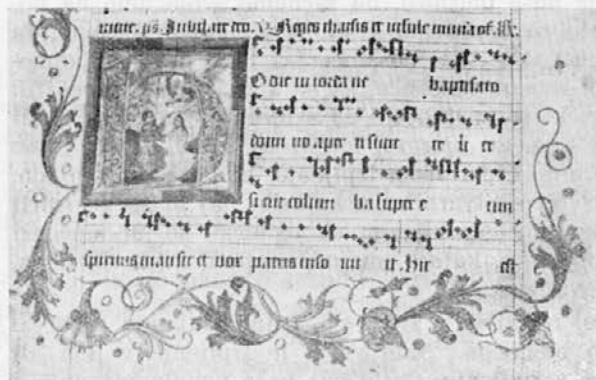 ps. Jubilate deo. V. Reges tharsis et insule
HOdie in iorda ne baptisato
domi no aper ti sunt ce li et
si cut colum ba super e um
spiritus mansit et vox patris inso nu it. hic est